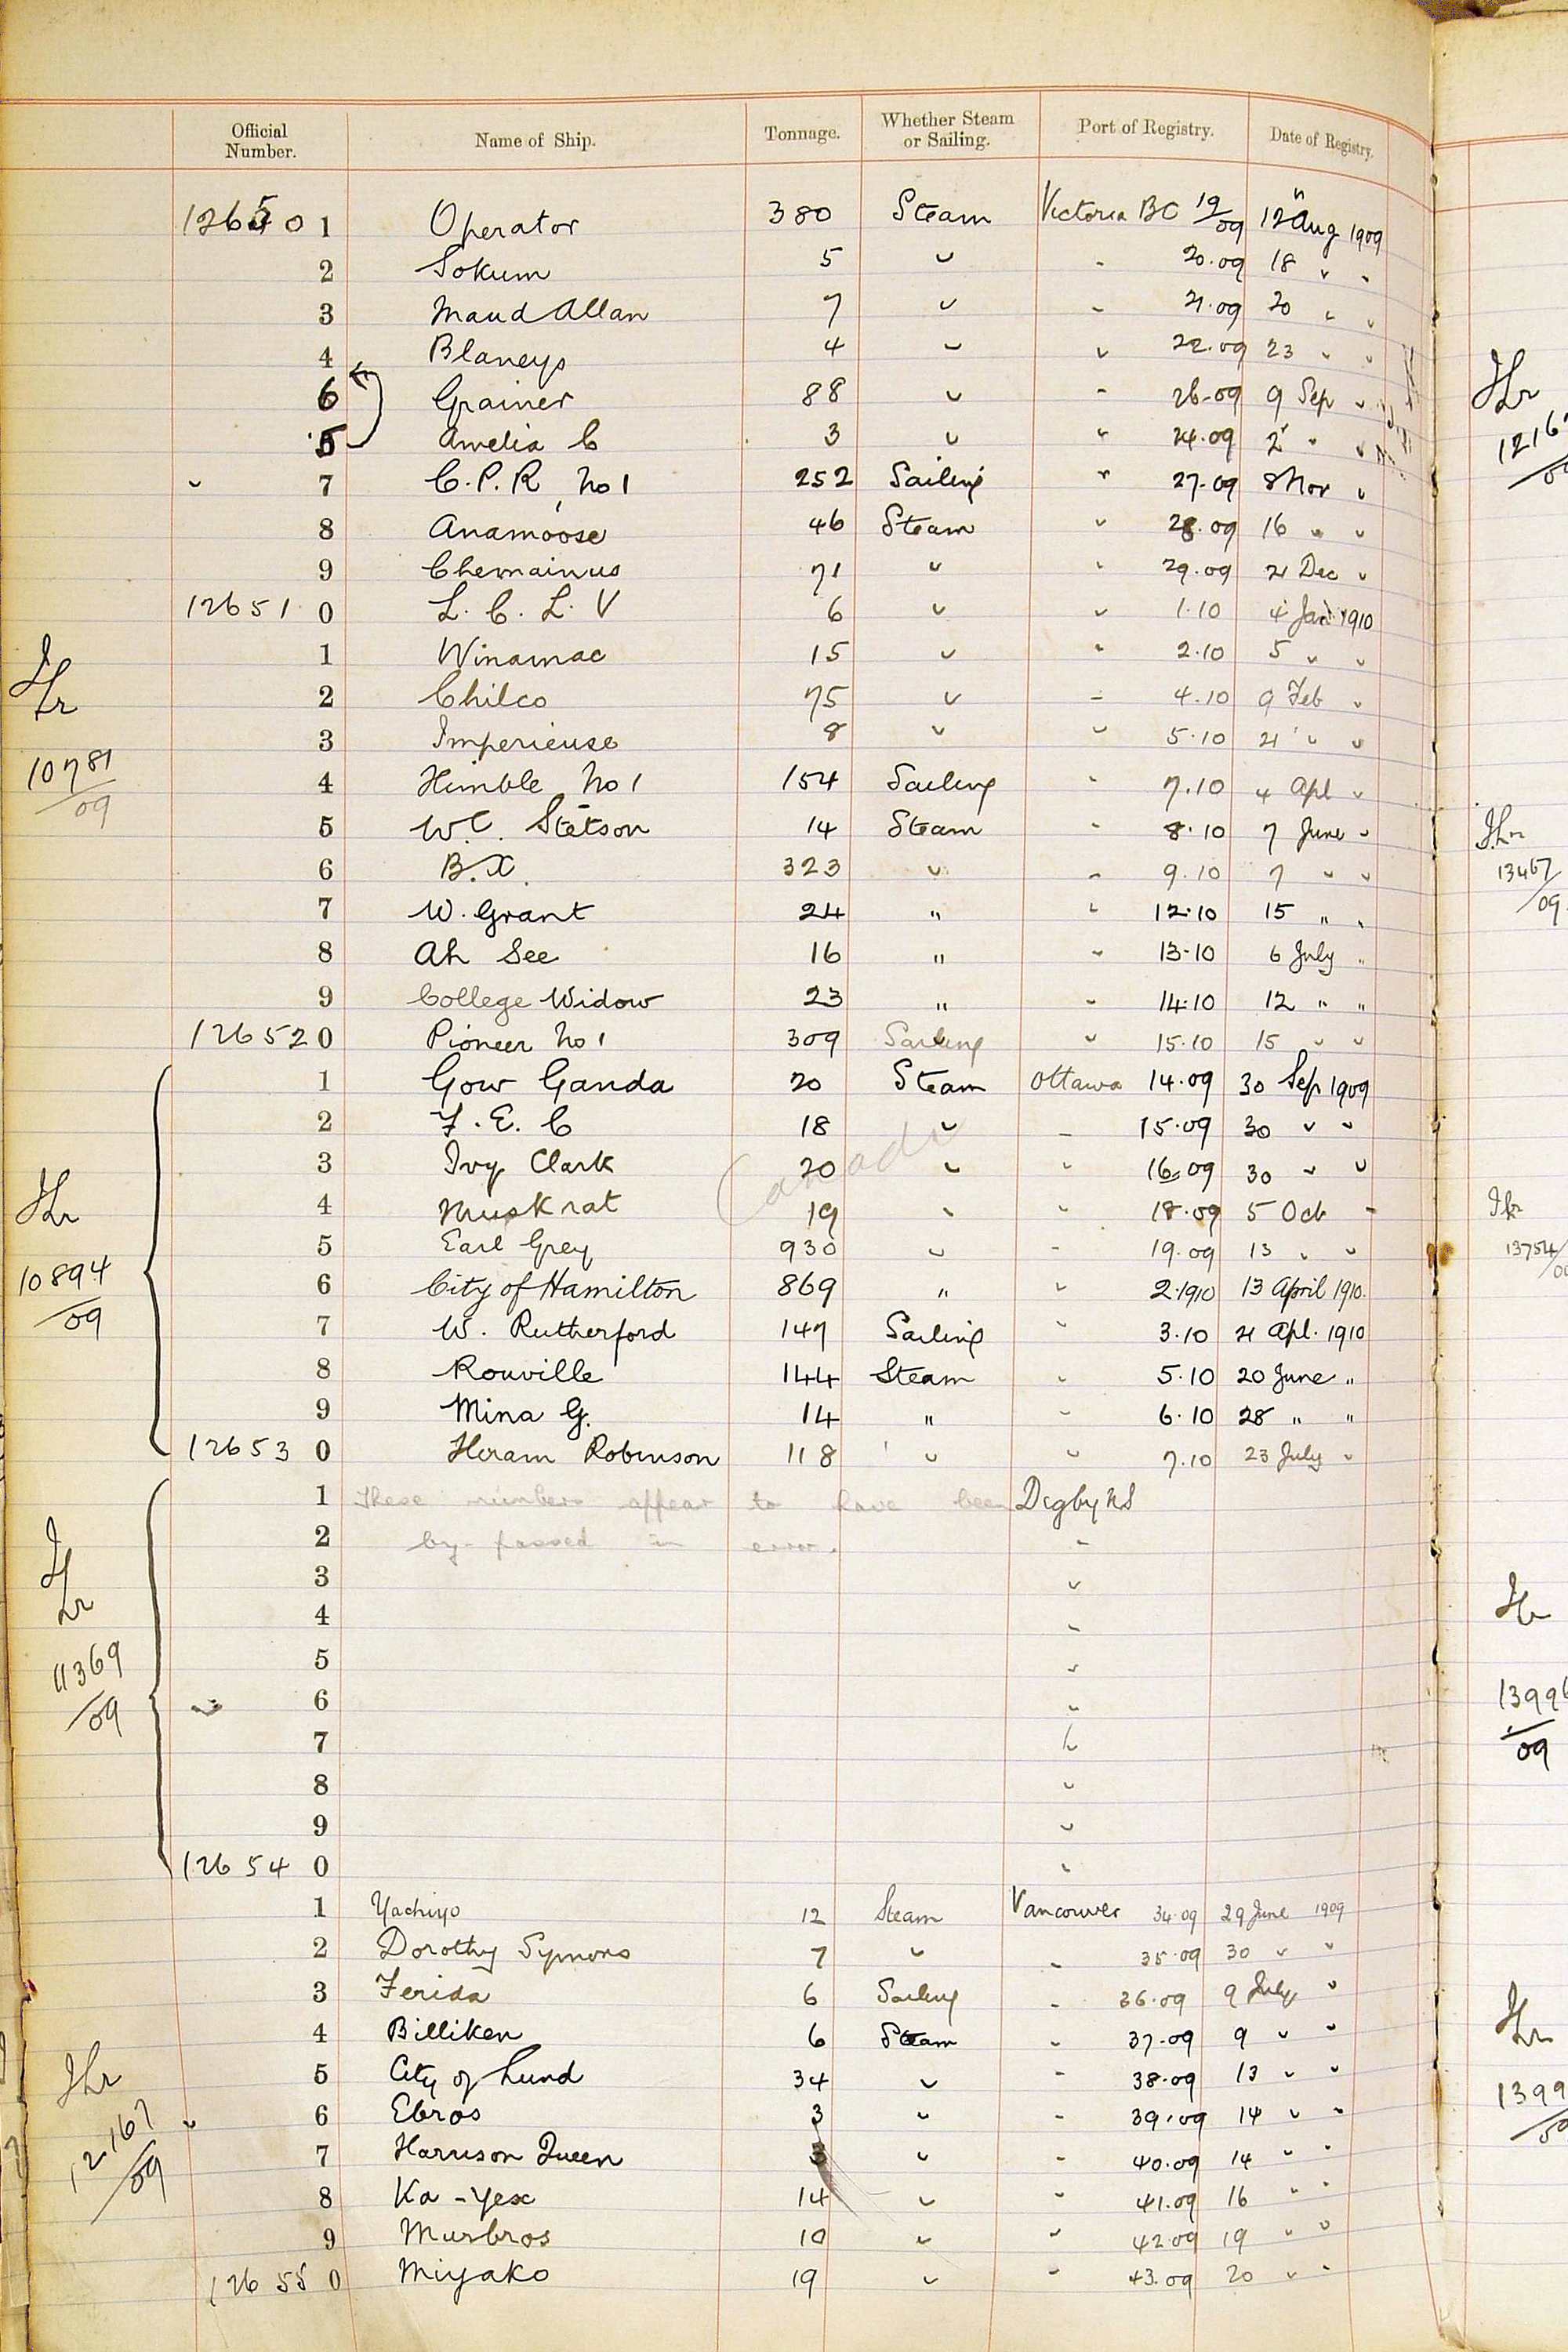 Official Number. Name of Ship. Tonnage. Whether Steam or Sailing. Port of Registry. Date of Registry.
126501 Operator 380 Steam Victoria BC 19/09 12 Aug 1909
2 Sokum 5 " " 20.09 18 " "
3 Maud Allan 7 " " 21.09 20 " "
4 Blaneys 4 " " 22.09 23 " "
6 Grainer 88 " " 26-09 9 Sep "
5 Amelia C 3 " " 24.09 2 " "
" 7 C.P.R. No 1 252 Sailing " 27.09 8 Nov "
8 Anamoose 46 Steam " 28.09 16 " "
9 Chemainus 71 " " 29.09 21 Dec "
126510 L. C. L. V 6 " " 1.10 4 Jan 1910
1 Winamac 15 " " 2.10 5 " "
2 Chilco 75 " " 4.10 9 Feb "
3 Imperieuse 8 " " 5.10 21 " "
10781/09
4 Himble No 1 154 Sailing " 7.10 4 Apl "
5 W.C. Stetson 14 Steam " 8.10 7 June "
6 B.X. 323 " " 9.10 7 " "
7 W. Grant 24 " " 12.10 15 " "
8 Ah See 16 " " 13.10 6 July "
9 College Widow 23 " " 14.10 12 " "
126520 Pioneer No 1 309 Sailing " 15.10 15 " "
1 Gow Ganda 20 Steam Ottawa 14.09 30 Sep 1909
2 F. E. C 18 " " 15.09 30 " "
Canada
3 Ivy Clark 20 " " 16.09 30 " "
4 Muskrat 19 " " 18.09 5 Oct "
5 Earl Grey 930 " " 19.09 13 " "
10894/09
6 City of Hamilton 869 " " 2.1910 13 April 1910.
7 W. Rutherford 147 Sailing " 3.10 21 Apl. 1910
8 Rouville 144 Steam " 5.10 20 June "
9 Mina G. 14 " " 6.10 28 " "
126530 Hiram Robinson 118 " " 7.10 23 July "
1 These numbers appear to have been Digby NS
2 by-passed in error. "
3 "
4 "
5 "
11369/09
6 "
7 "
8 "
9 "
126540 "
1 Yachiyo 12 Steam Vancouver 34.09 29 June 1909
2 Dorothy Symons 7 " " 35.09 30 " "
3 Ferida 6 Sailing " 36.09 9 July "
4 Billiken 6 Steam " 37.09 9 " "
5 City of Lund 34 " " 38.09 13 " "
12167/09
" 6 Ebros 3 " " 39.09 14 " "
7 Harrison Queen 3 " " 40.09 14 " "
8 Ka-Yex 14 " " 41.09 16 " "
9 Murbros 10 " " 42.09 19 " "
126550 Miyako 19 " " 43.09 20 " "
1216
13467/09
13754/
1399
09
1399